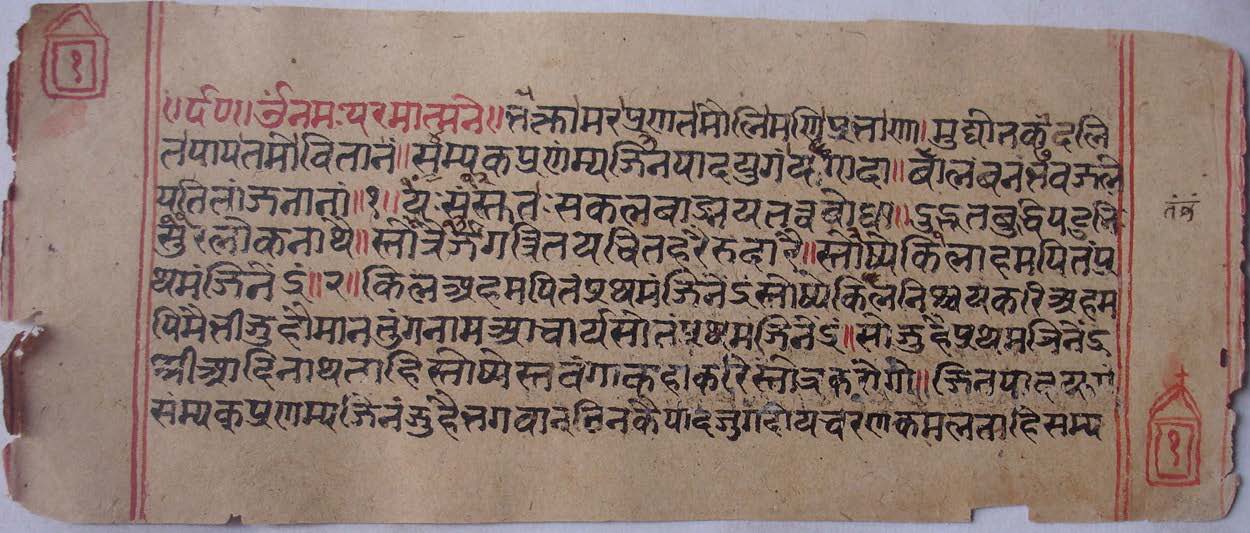 १
॥र्द०॥ र्उंनमःपरमात्मने॥ भक्तामरप्रणतमौलिमणिप्रभाणा॥मुद्योतकंदलि
तपापतमोवितानं॥सम्यक्प्रणम्यजिनपादयुगंयुगादा॥वालंबनंभवजले
पततिलांजनानां॥१॥यःसंस्तुतःसकलवाङ्मयतत्वबोधा॥दुद्भूतबुद्धिपटुभिः
सुरलोकनाथैः॥स्तोत्रैर्जगत्रितयचित्तहरैरुदारैः॥स्तोष्येकिलाहमपितंप्र
थमंजिनेंऽं॥२॥किलअहमपितंप्रथमंजिनेंऽंस्तोष्येकिलनिश्चयकरिअहम
पिमैभीजुहौमानतुंगनामआचार्यसोतंप्रथमजिनेंऽं॥सोजुहैप्रथमजिनेंऽ
श्रीआदिनाथताहिस्तोष्येस्तवंगाकहाकरिस्तोत्रकरोंगो॥जिनपादयुगं
सम्यक्प्रणम्यजिनंजुहैभगवानतिनकेपादजुगदोयचरणकमलताहिसम्य
१